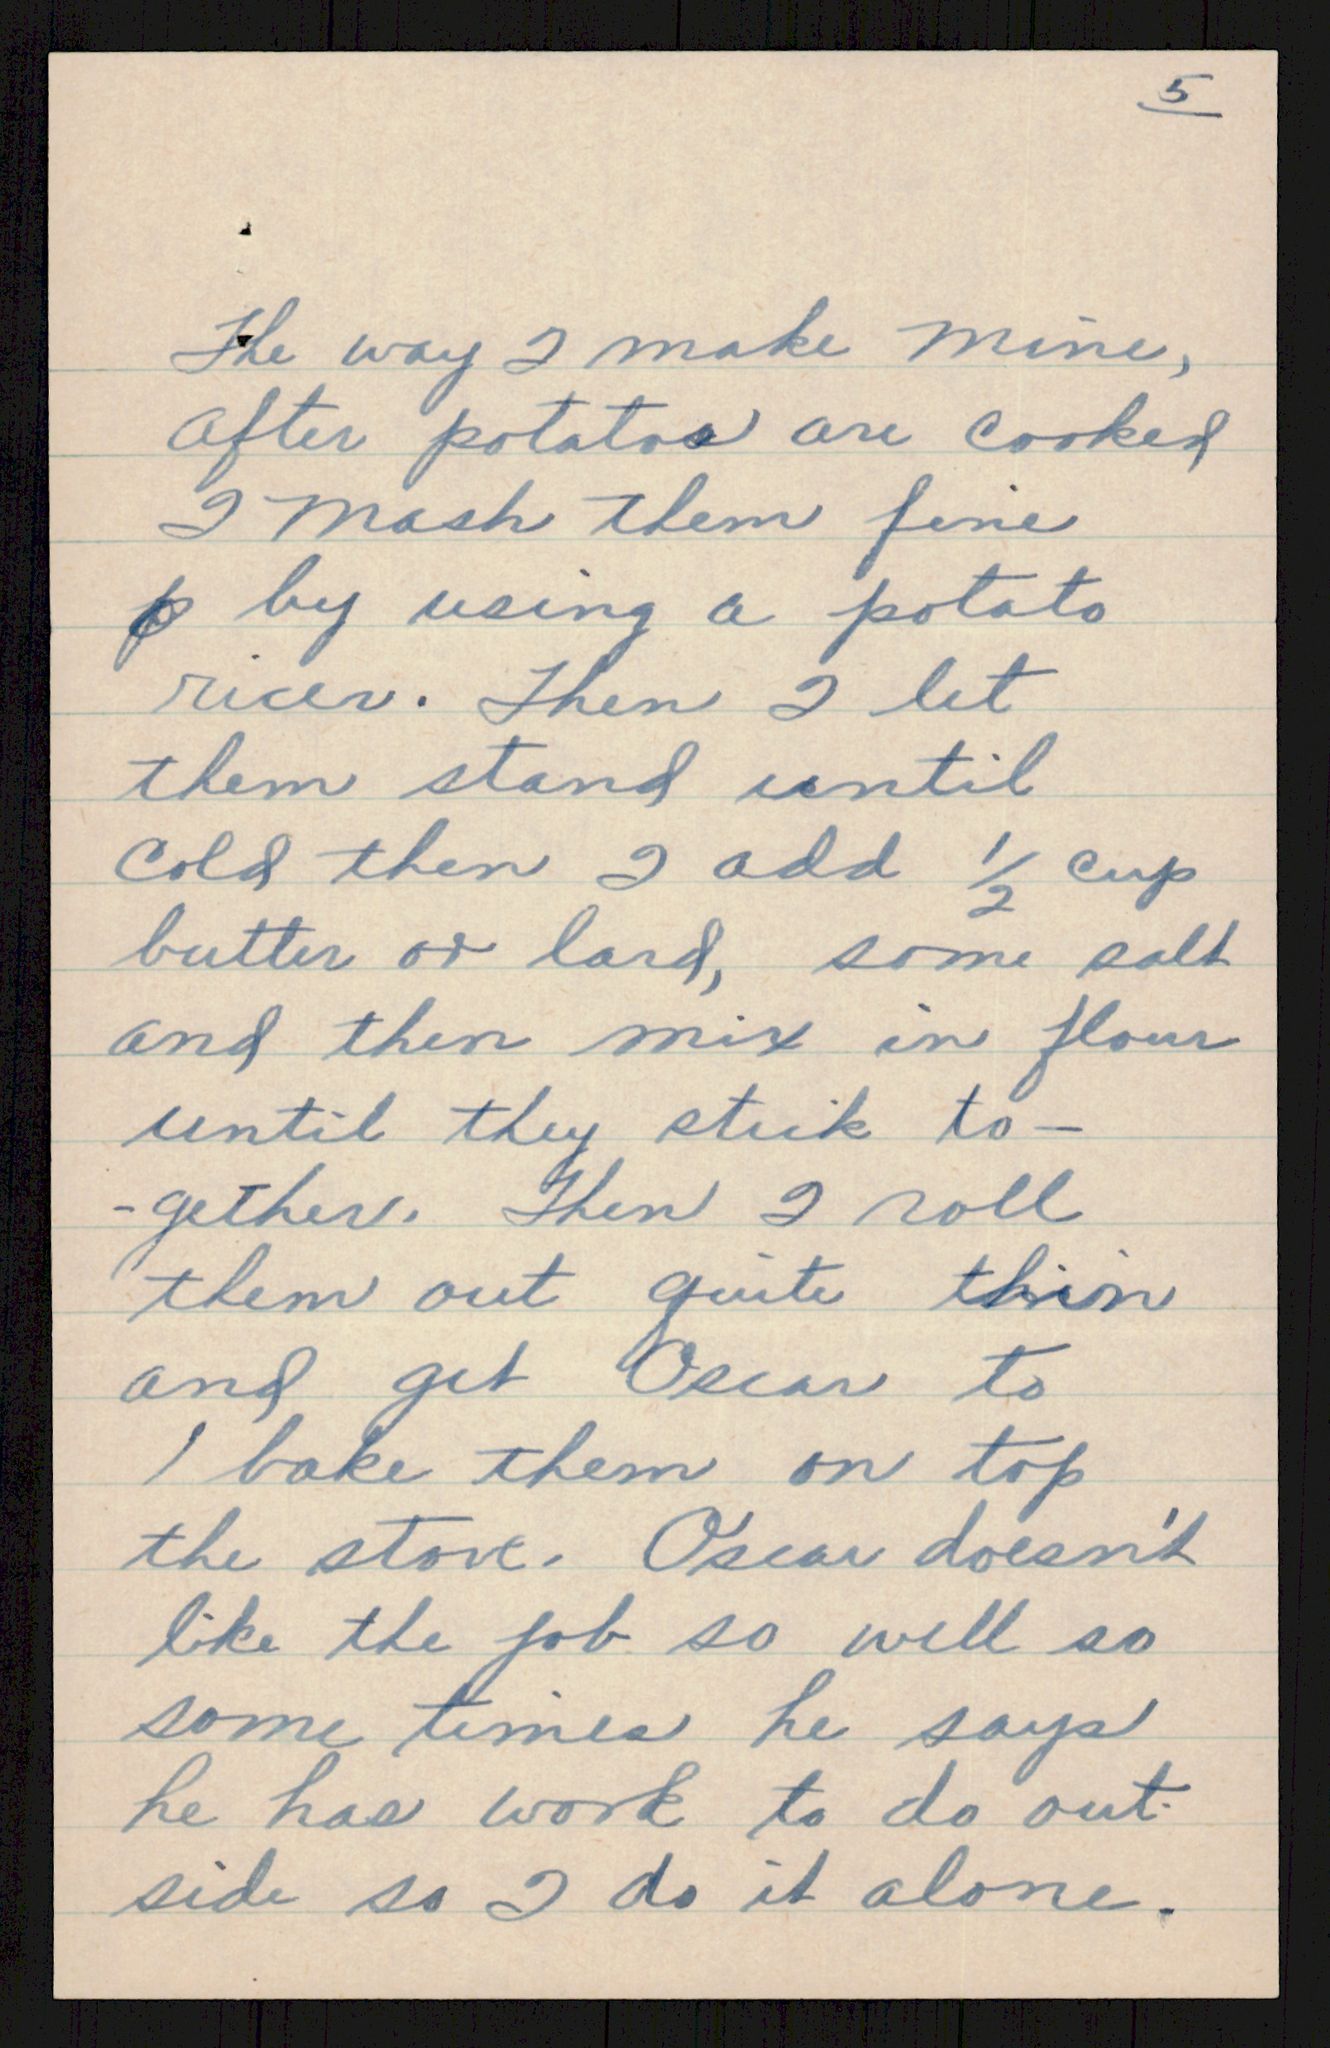 5
The way I make mine,
after potatoes are cooked
I mash them fine
by using a potato
ricer. Then I let
them stand until
cold then I add 1/2 cup
butter or lard, some salt
and then mix in flour
until they stick to-
-gether. Then I roll
them out quite thin
and get Oscar to
bake them on top
the stove. Oscar doesn't
like the job so well so
some times he says
he has work to do out
side so I do it alone.